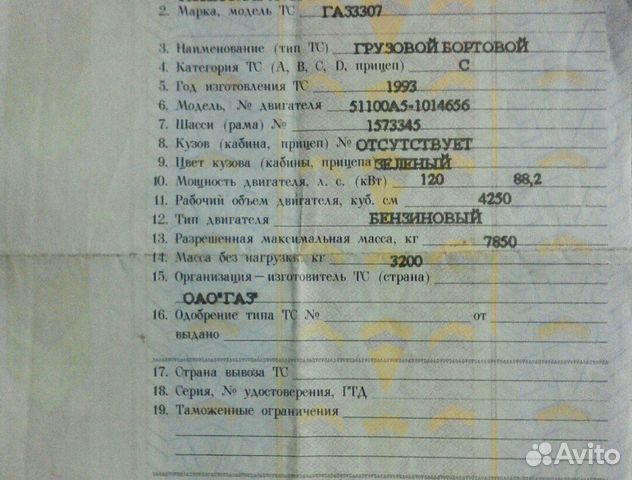 2. Марка, модель ТС ГАЗ3307
3. Наименование (тип ТС) ГРУЗОВОЙ БОРТОВОЙ
4. Категория ТС (A, B, C, D, прицеп) С
5. Год изготовления ТС 1993
6. Модель, № двигателя 51100А5-1014656
7. Шасси (рама) № 1573345
8. Кузов (кабина, прицеп) № ОТСУТСТВУЕТ
9. Цвет кузова (кабины, прицепа) ЗЕЛЕНЫЙ
10. Мощность двигателя, л. с. (кВт) 120 88,2
11. Рабочий объем двигателя, куб. см 4250
12. Тип двигателя БЕНЗИНОВЫЙ
13. Разрешенная максимальная масса, кг 7850
14. Масса без нагрузки, кг 3200
15. Организация—изготовитель ТС (страна)
ОАО"ГАЗ"
16. Одобрение типа ТС № от
выдано
17. Страна вывоза ТС
18. Серия, № удостоверения, ГТД
19. Таможенные ограничения
Avito